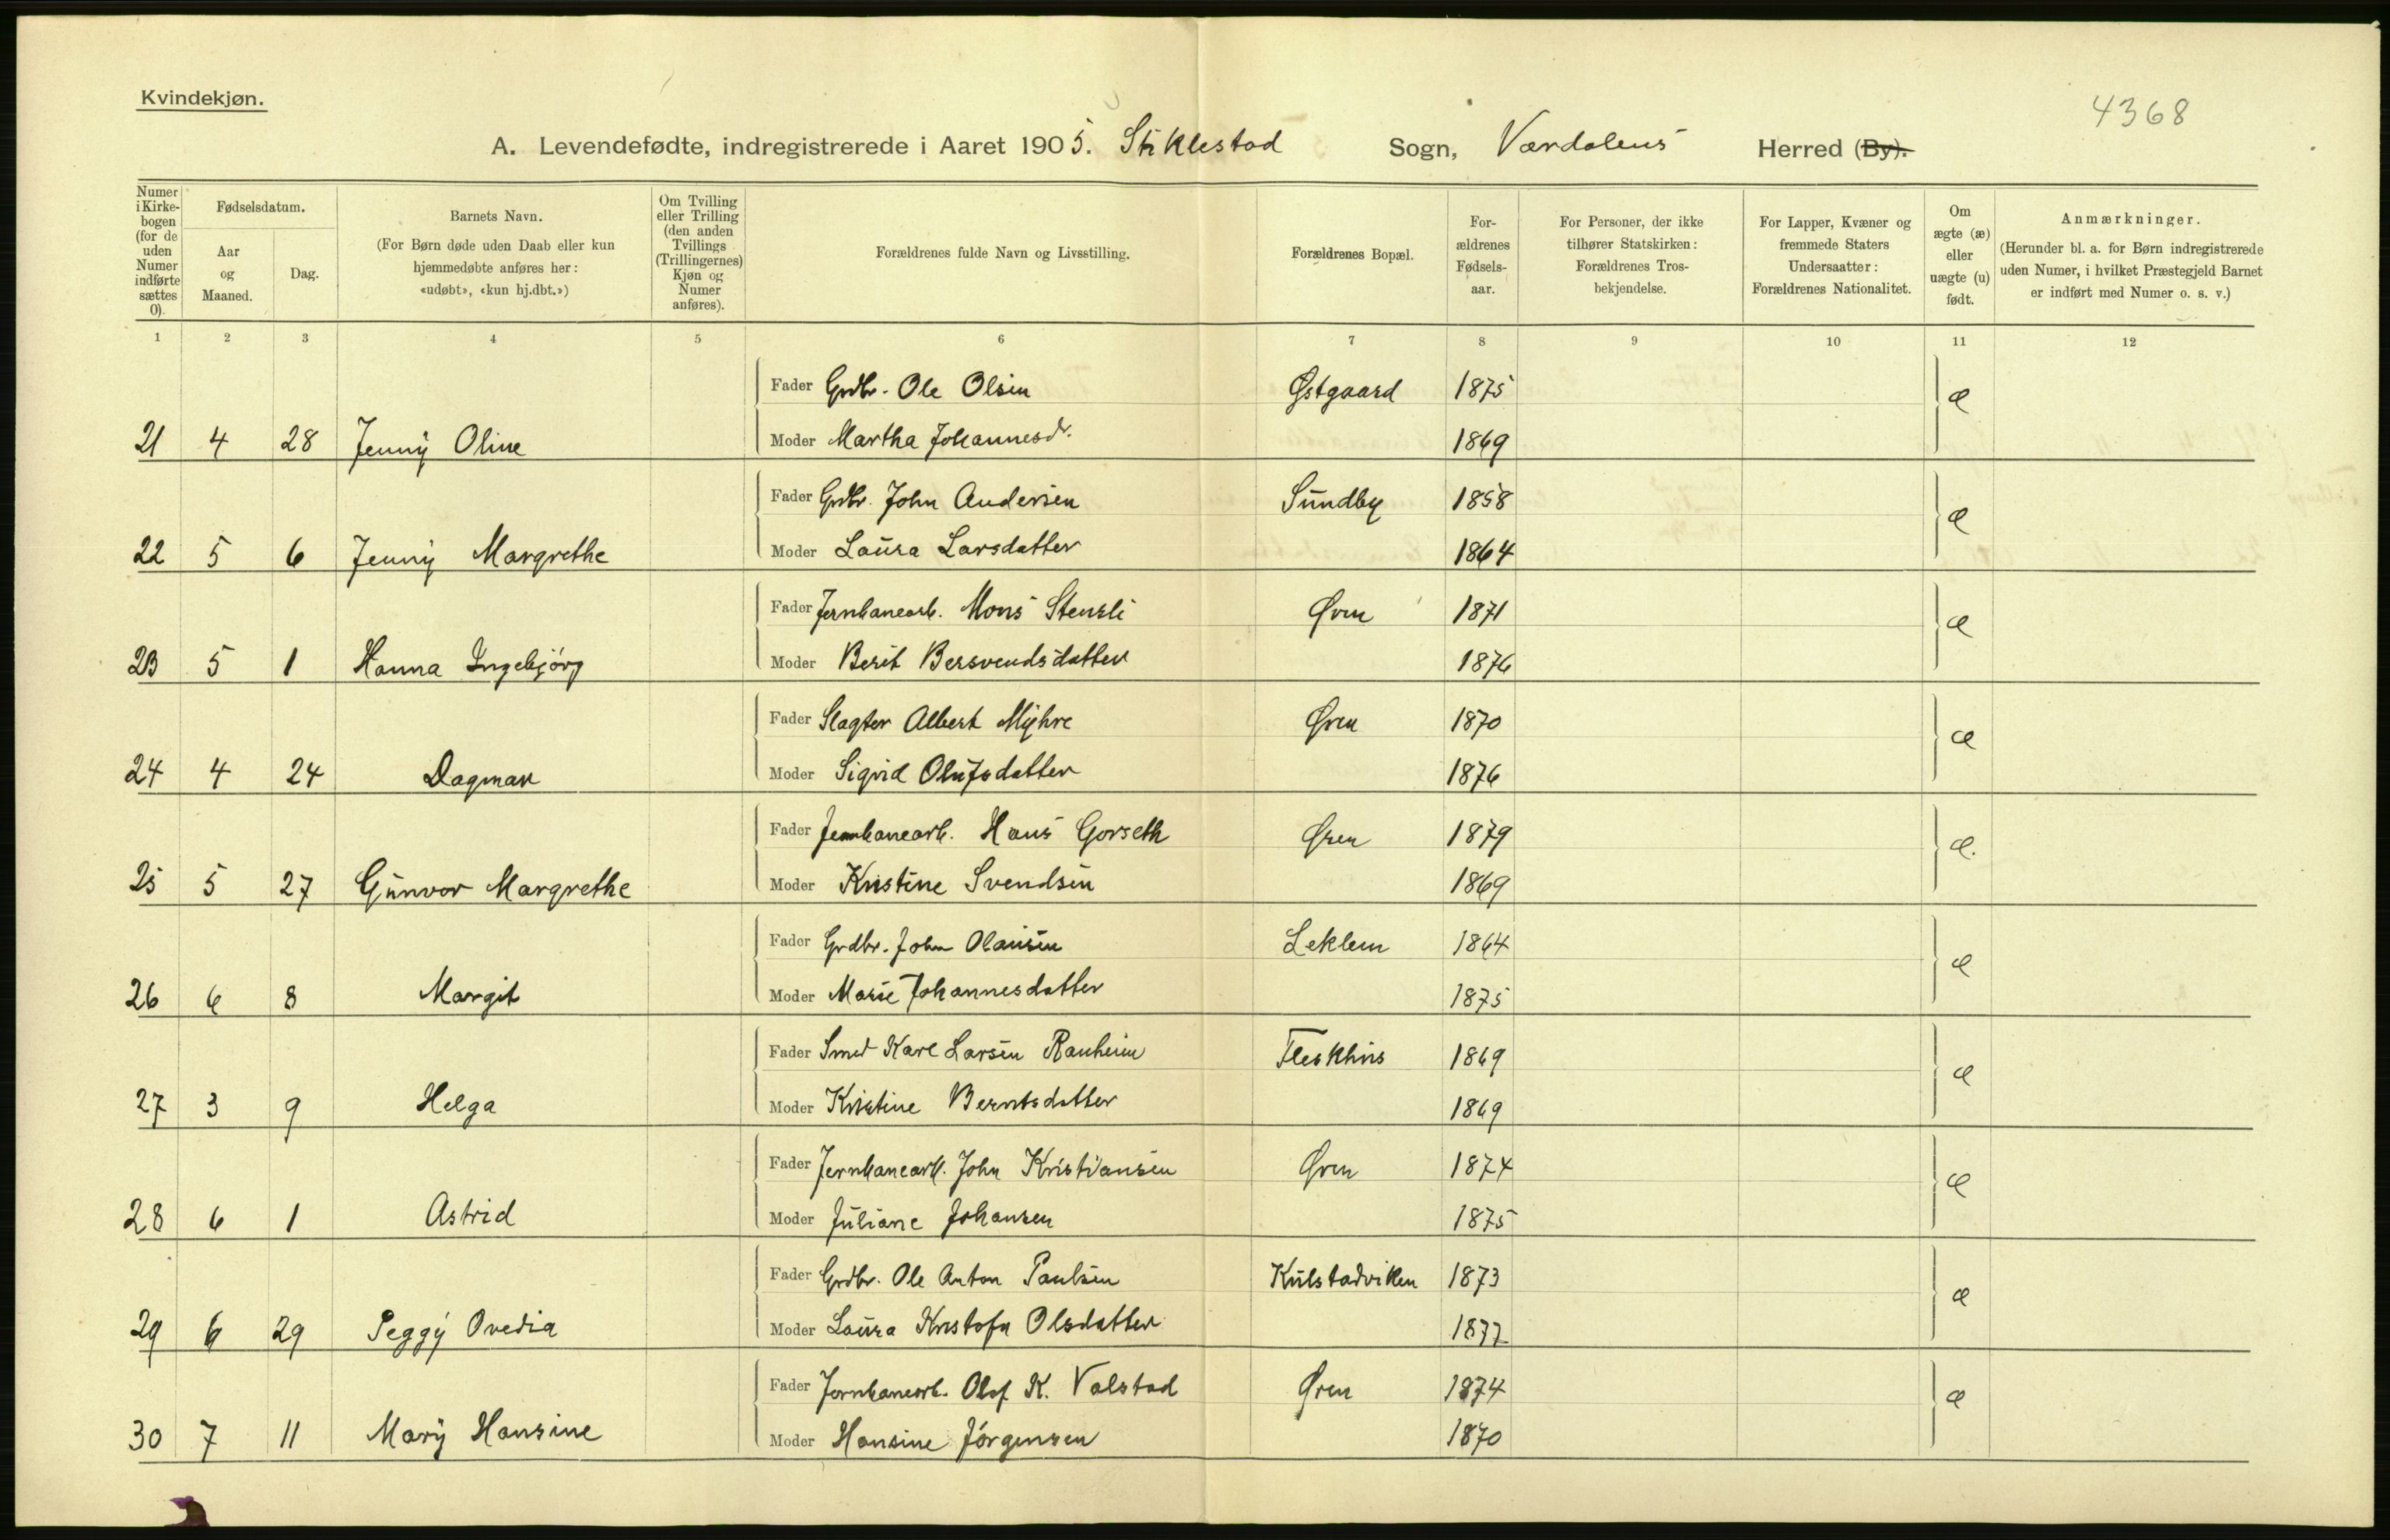 Kvindekjøn.
4368
A. Levendefødte, indregistrerede i Aaret 1905. Stiklestad Sogn, Værdalens Herred (By).
Numer i Kirkebogen (for de uden Numer indførte sættes 0).
Fødselsdatum.
Aar og Maaned.
Dag.
Barnets Navn.
(For Børn døde uden Daab eller kun hjemmedøbte anføres her: «udøbt», «kun hj.dbt.»)
Om Tvilling eller Trilling (den anden Tvillings (Trillingernes) Kjøn og Numer anføres).
Forældrenes fulde Navn og Livsstilling.
Forældrenes Bopæl.
Forældrenes Fødselsaar.
For Personer, der ikke tilhører Statskirken: Forældrenes Trosbekjendelse.
For Lapper, Kvæner og fremmede Staters Undersaatter: Forældrenes Nationalitet.
Om ægte (æ) eller uægte (u) født.
Anmærkninger.
(Herunder bl. a. for Børn indregistrerede uden Numer, i hvilket Præstegjeld Barnet er indført med Numer o. s. v.)
1 2 3 4 5 6 7 8 9 10 11 12
Fader Grdbr. Ole Olsen Østgaard 1875 æ
21 4 28 Jenny Oline Moder Martha Johannesd. 1869
Fader Grdbr. John Andersen Sundby 1858 æ
22 5 6 Jenny Margrethe Moder Laura Larsdatter 1864
Fader Jernbanearb. Mons Stensli Øren 1871 æ
23 5 1 Hanna Ingebjørg Moder Berit Bersvendsdatter 1876
Fader Slagter Albert Myhre Øren 1870 æ
24 4 24 Dagmar Moder Sigrid Olufsdatter 1876
Fader Jernbanearb. Hans Gorseth Øren 1879 æ.
25 5 27 Gunvor Margrethe Moder Kristine Svendsen 1869
Fader Grdbr. John Olausen Leklem 1864 æ
26 6 8 Margit Moder Marie Johannesdatter 1875
Fader Smed Karl Larsen Ranheim Fleskhus 1869 æ
27 3 9 Helga Moder Kristine Berntsdatter 1869
Fader Jernbanearb. John Kristiansen Øren 1874 æ
28 6 1 Astrid Moder Juliane Johansen 1875
Fader Grdbr. Ole Anton Paulsen Kulstadviken 1873 æ
29 6 29 Peggy Ovedia Moder Laura Kristofa Olsdatter 1877
Fader Jernbanearb. Olof K. Valstad Øren 1874 æ
30 7 11 Mary Hansine Moder Hansine Jørgensen 1870